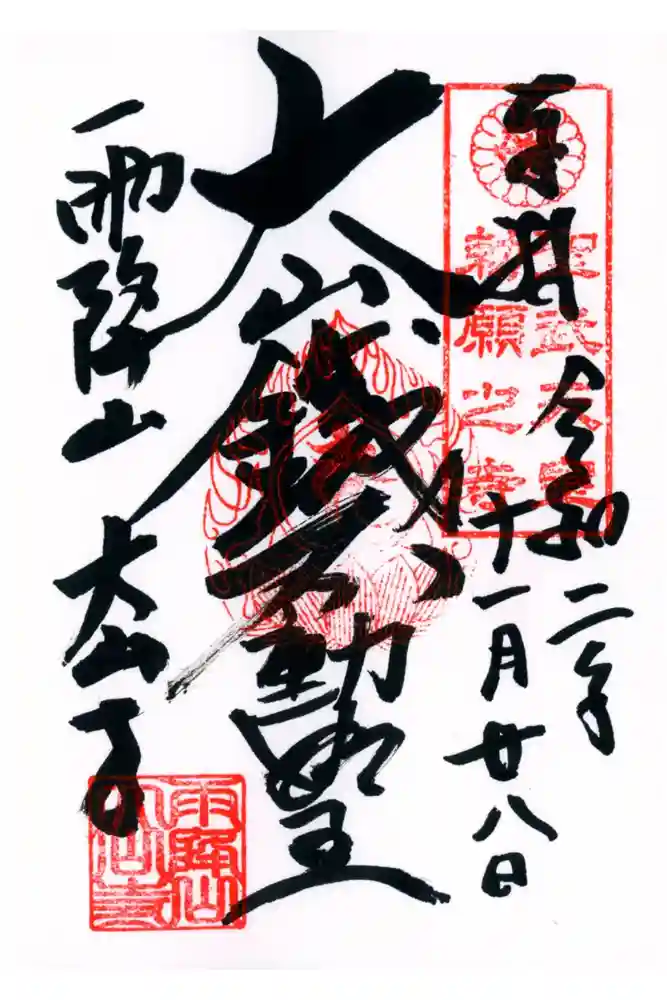 奉拝
令和二年
十一月廿八日
聖武天皇
勅願之寺
大山鐵不動明王
雨降山
大山寺
雨降山
大山寺